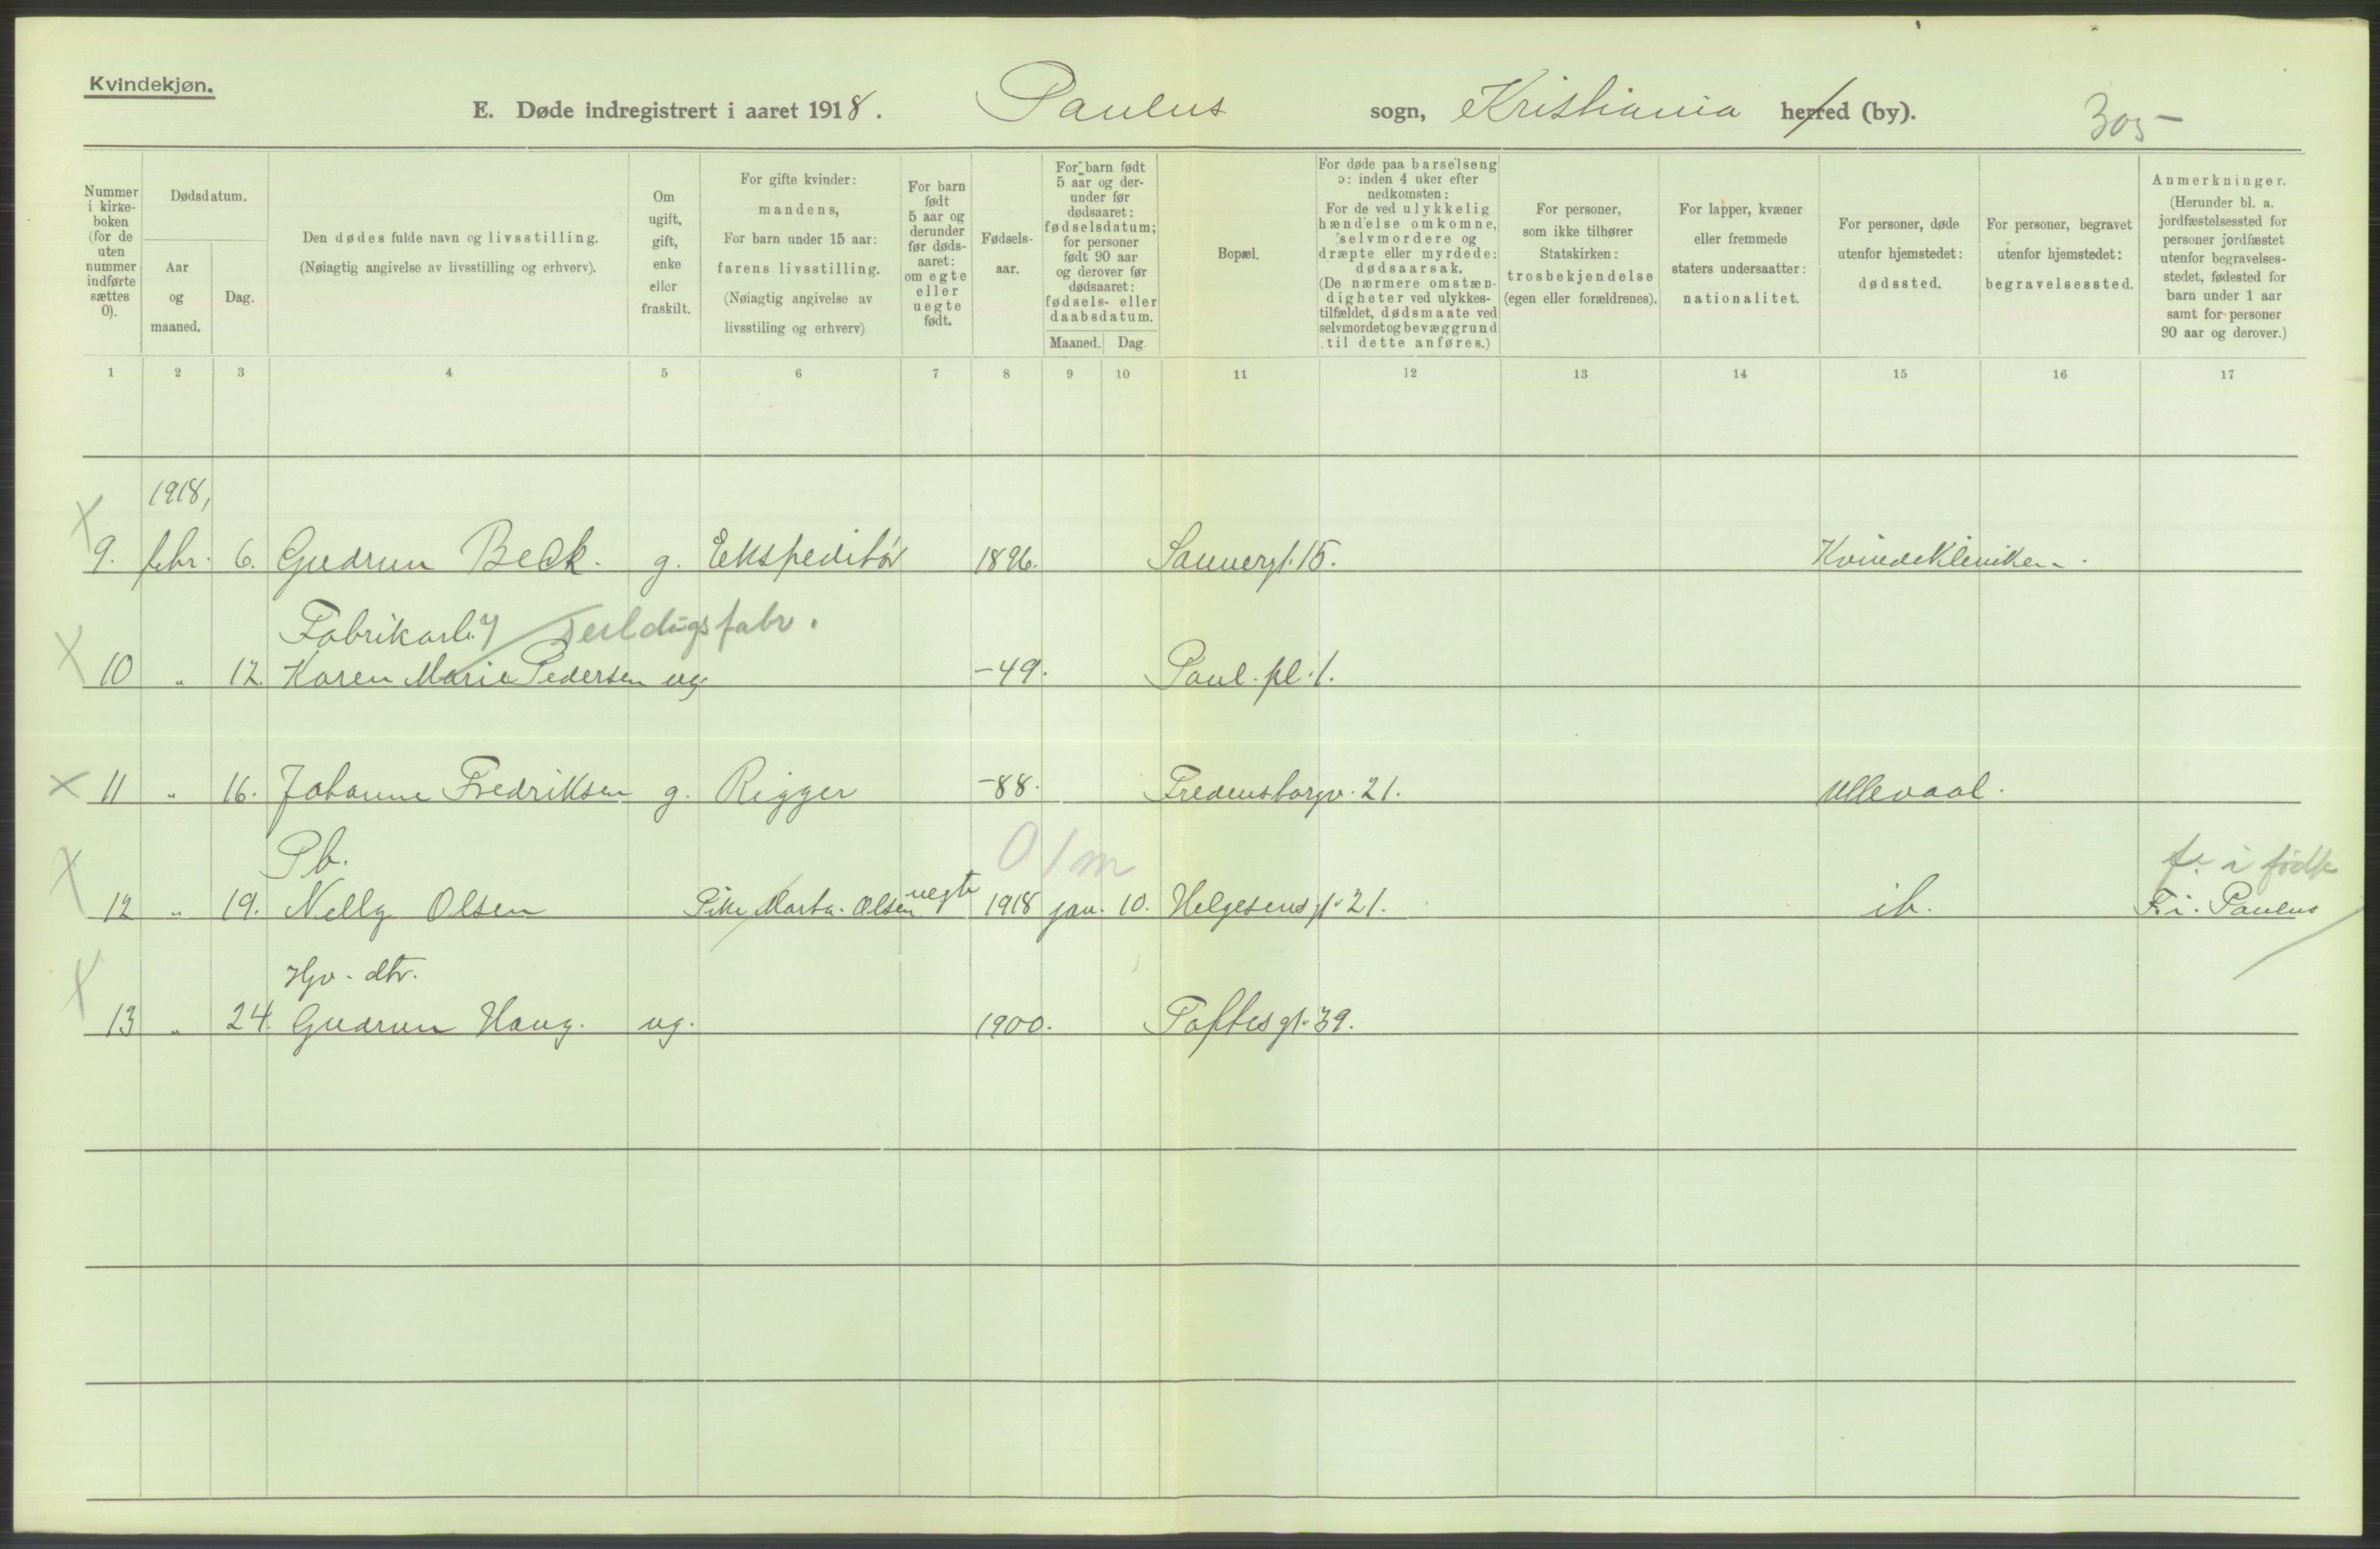 Kvindekjøn.
E. Døde indregistrert i aaret 1918. Paulus sogn, Kristiania herred (by). 305
Nummer i kirke- boken (for de uten nummer indførte sættes 0).
Dødsdatum.
Aar og maaned.
Dag.
Den dødes fulde navn og livsstilling.
(Nøiagtig angivelse av livsstilling og erhverv).
Om ugift, gift, enke eller fraskilt.
For gifte kvinder: mandens,
For barn under 15 aar: farens livsstilling.
(Nøiagtig angivelse av livsstiling og erhverv)
For barn født 5 aar og derunder før døds- aaret: om egte eller uegte født.
Fødsels- aar.
For barn født 5 aar og der- under før dødsaaret: fødselsdatum; for personer født 90 aar og derover før dødsaaret: fødsels- eller daabsdatum.
Maaned. Dag.
Bopæl.
For døde paa barselseng ɔ: inden 4 uker efter nedkomsten:
For de ved ulykkelig hændelse omkomne, selvmordere og dræpte eller myrdede: dødsaarsak.
(De nærmere omstæn- digheter ved ulykkes- tilfældet, dødsmaate ved selvmordet og bevæggrund til dette anføres.)
For personer, som ikke tilhører Statskirken: trosbekjendelse (egen eller forældrenes).
For lapper, kvæner eller fremmede staters undersaatter: nationalitet.
For personer, døde utenfor hjemstedet: dødssted.
For personer, begravet utenfor hjemstedet: begravelsessted.
Anmerkninger.
(Herunder bl. a. jordfæstelsessted for personer jordfæstet utenfor begravelses- stedet, fødested for barn under 1 aar samt for personer 90 aar og derover.)
1 2 3 4 5 6 7 8 9 10 11 12 13 14 15 16 17
1918,
9. febr. 6. Gudrun Beck. g. Ekspeditør 1896. Sannergt. 15. Kvindekliniken.
Fabrikarb. Seildugsfabr.
10 " 12. Karen Marie Pedersen ug. -49. Paul. pl. 1.
11 " 16. Johanne Fredriksen g. Rigger -88. Fredensborgv. 21. Ullevaal.
Pb. 0/m f. i
12 " 19. Nelly Olsen Pike Marta Olsen uegte 1918 jan. 10. Helgesens gt. 21. ib. F. i. Paulus
Hjv. dtr.
13 " 24. Gudrun Haug. ug. 1900. Toftes gt. 39.